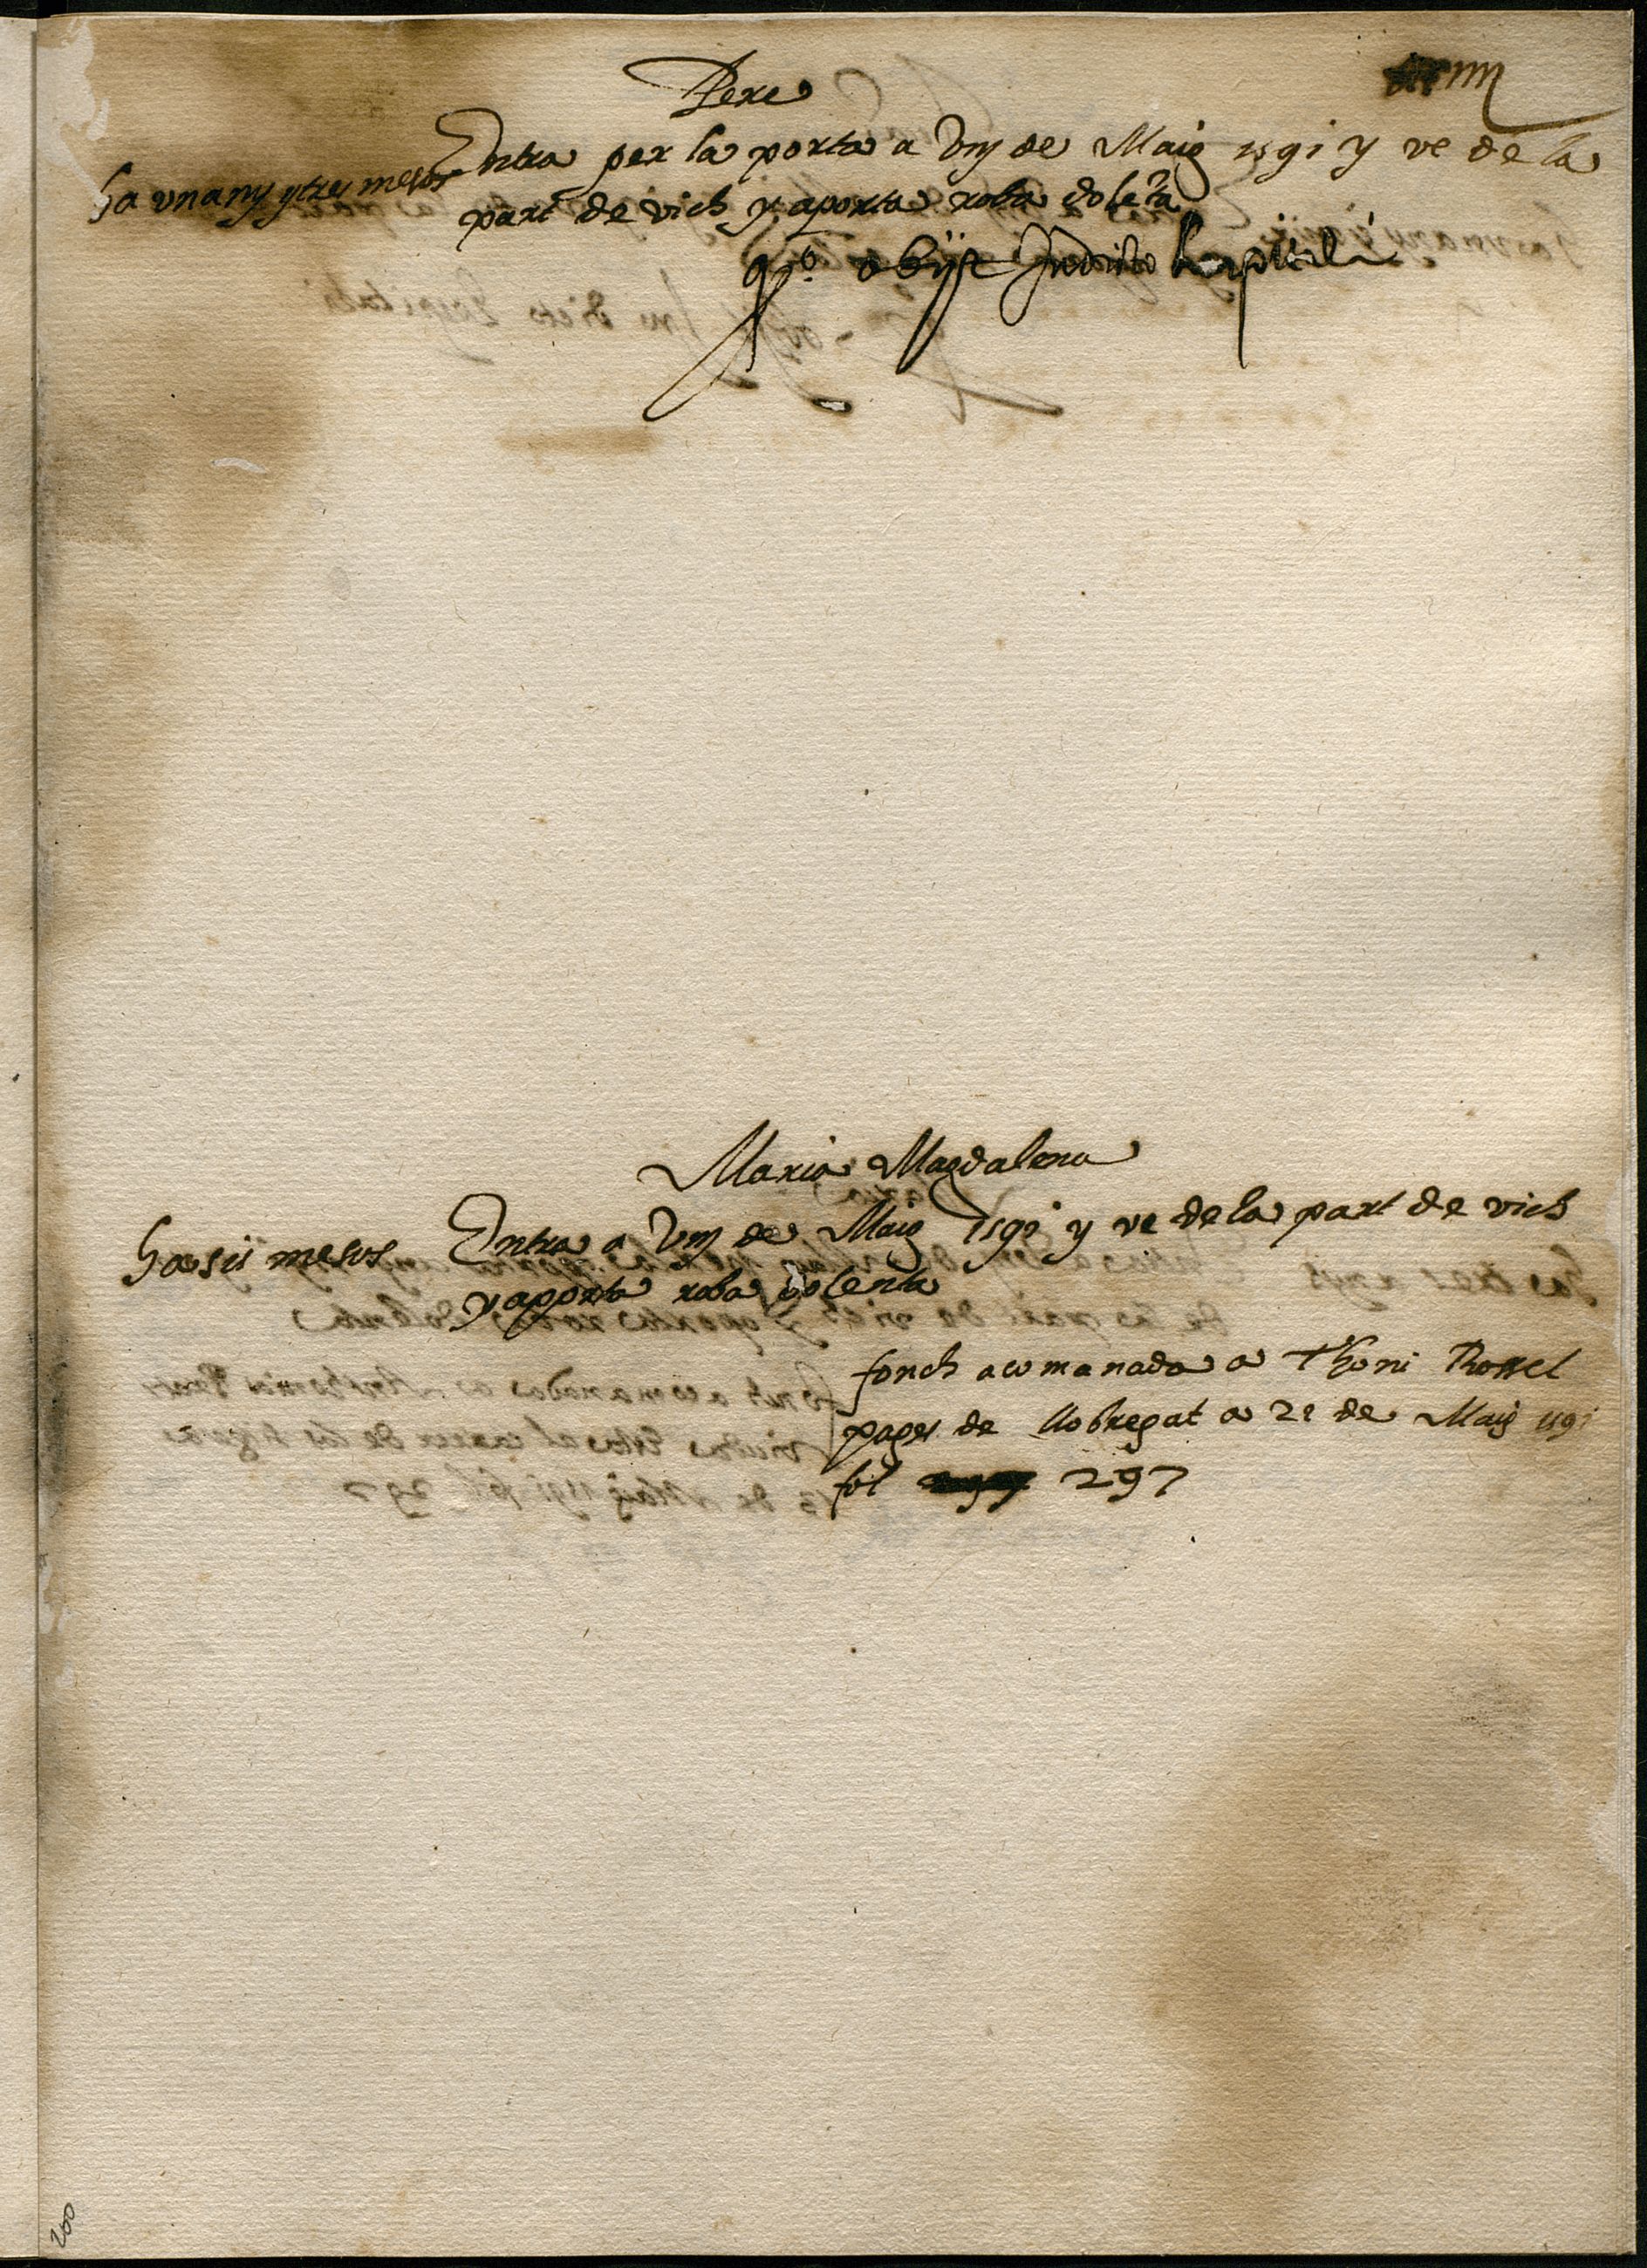 Pere
ha un any y tres mesos
Entra per la porta a Viij de Maig 1591 y ve de la
part de vich y aporta roba dolẽta
qº. obijt In dicto hospitali
Maria Magdalena
ha sis mesos
Entra a Viij de Maig 1591 y ve de la part de vich
y apporta roba dolenta
fonch acomanada a Thoni Rossel
pages de llobregat a 21 de Maig 1591
fol 297
200